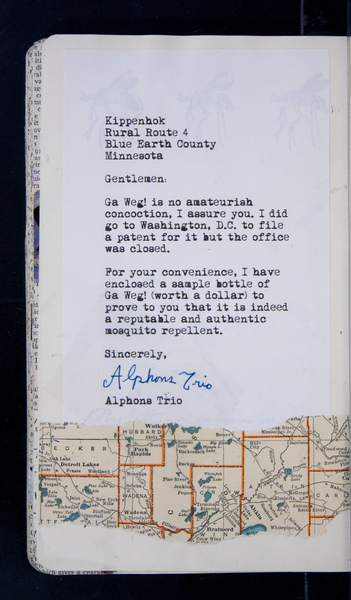 Kippenhok
Rural Route 4
Blue Earth County
Minnesota
Gentlemen:
Ga Weg! is no amateurish
concoction, I assure you. I did
go to Washington, D.C. to file
a patent for it but the office
was closed.
For your convenience, I have
enclosed a sample bottle of
Ga Weg! (worth a dollar) to
prove to you that it is indeed
a reputable and authentic
mosquito repellent.
Sincerely,
Alphons Trio
Alphons Trio
HUBBARD
BECKER
Park
Rapids
Detroit Lakes
Frazee
Wadena
WADENA
Pine River
Backus
AITKIN
Aitkin
Brainerd